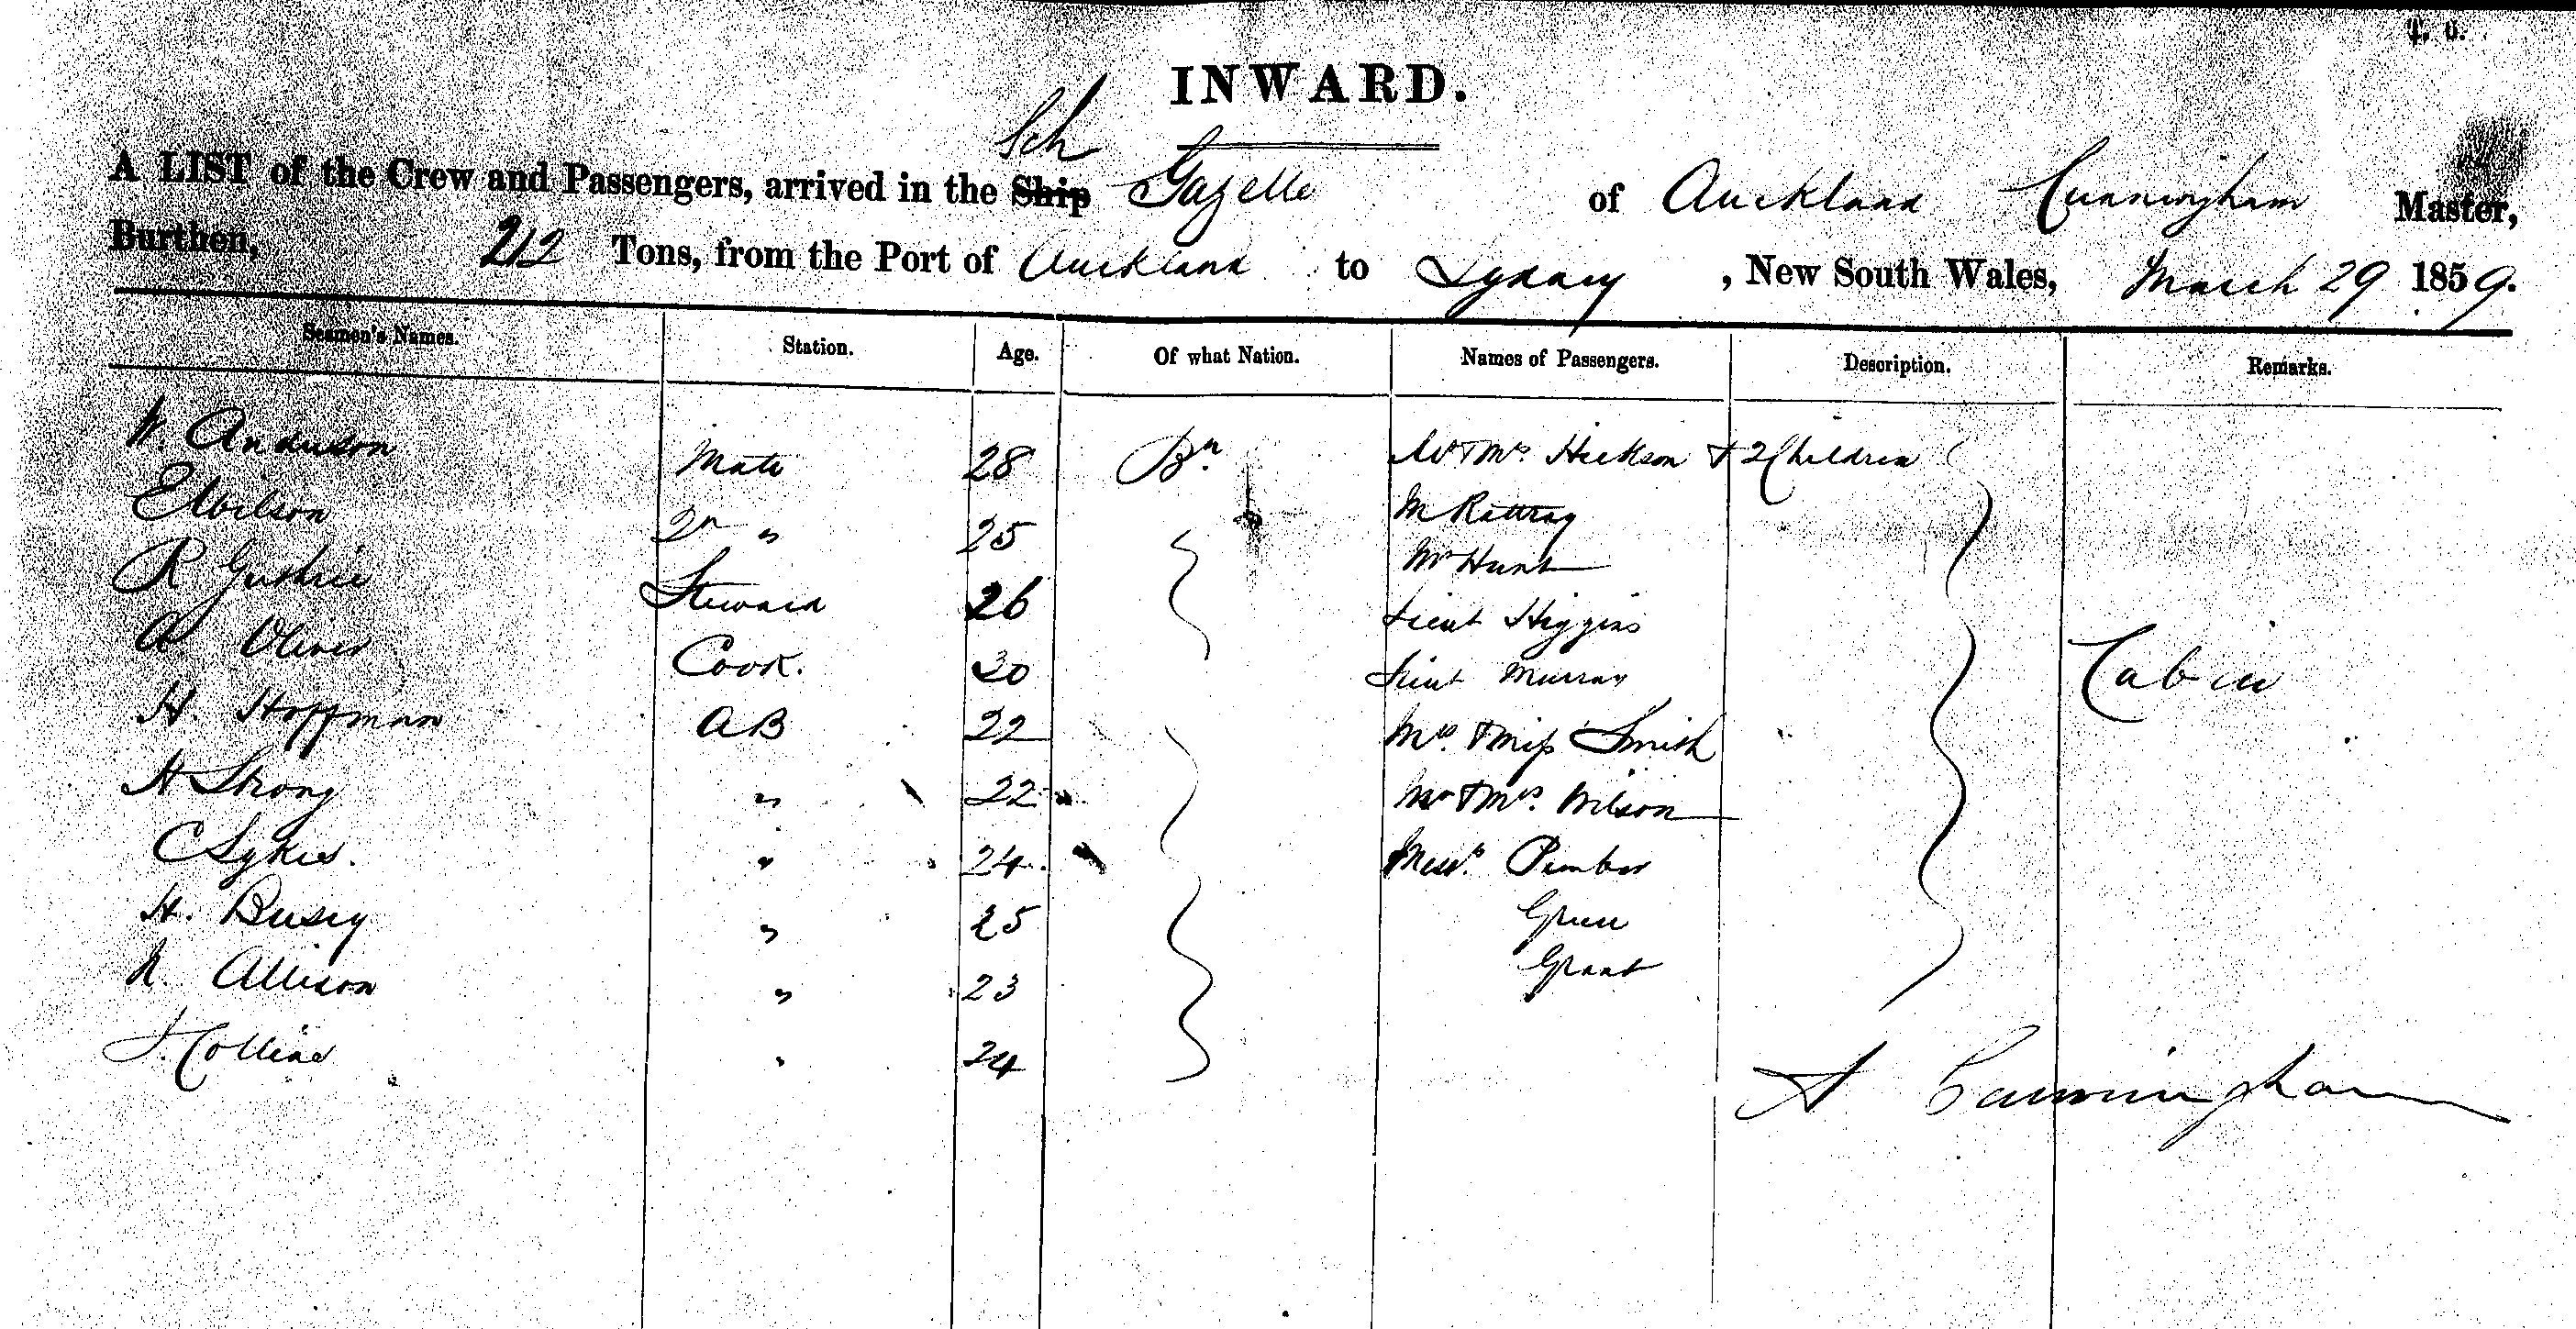 INWARD.
Sch
A LIST of the Crew and Passengers, arrived in the Ship Gazelle of Auckland Cunningham Master,
Burthen, 212 Tons, from the Port of Auckland to Sydney, New South Wales, March 29 1859.
Seamen's Names. Station. Age. Of what Nation. Names of Passengers. Description. Remarks.
W. Anderson Mate 28 Bn. Mr & Mrs. Hickson & 2 Children
E Wilson 2n " 25 Mr Rattray
R Guthrie Steward 26 Mr Hunt
A Oliver Cook. 30 Lieut Higgins
H. Hoffman AB 22 Lieut Murray Cabin
H Strong " 22 Mrs. & Miss Smith
C Sykes. " 24 Mr & Mrs. Wilson
H. Busey " 25 Messrs.
R. Allison " 23 Green
J. Collins " 24 Grant
A Cunningham